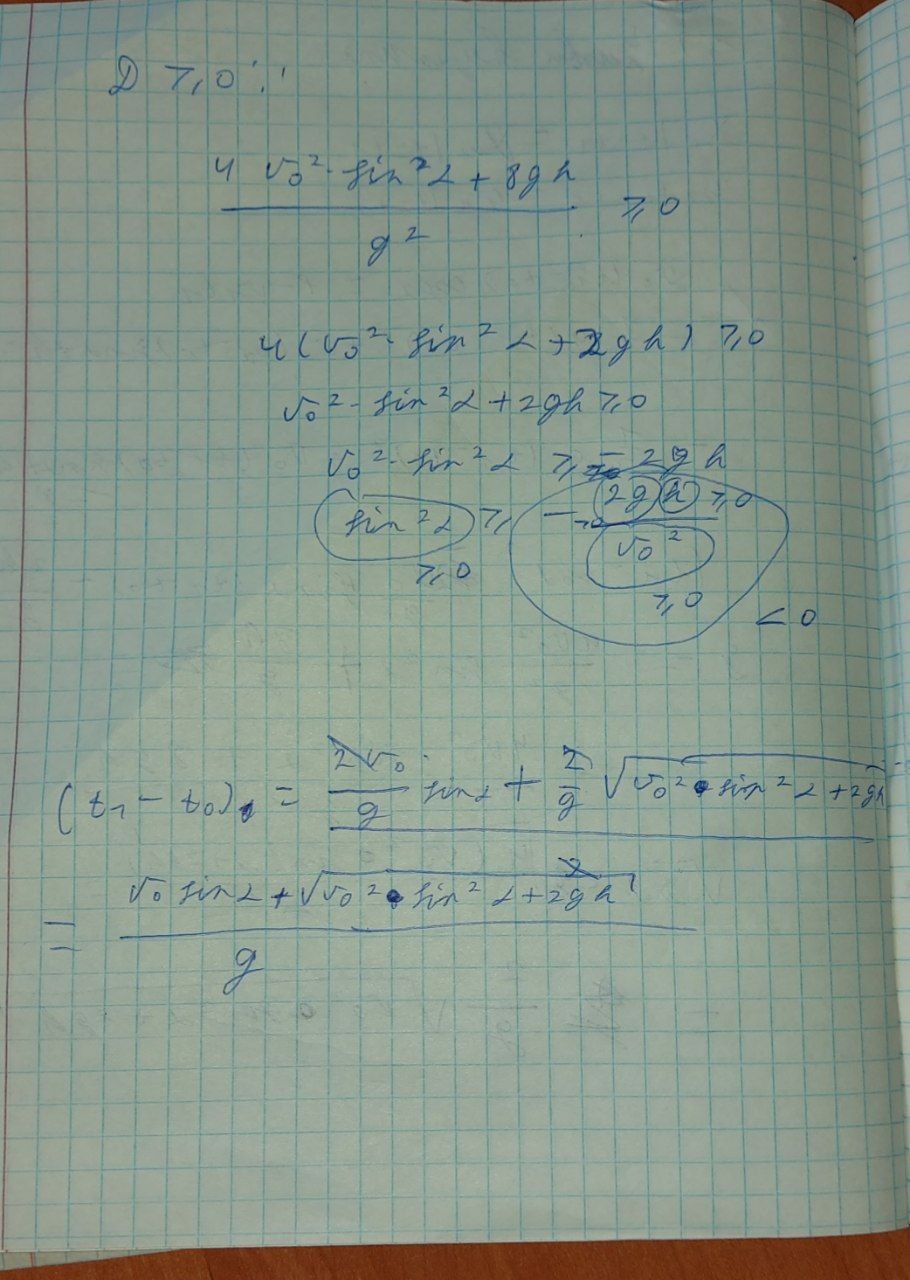 D ⩾ 0 :
4 v₀² · sin²α + 8gh
g²
⩾ 0
4 (v₀² · sin²α + 2gh) ⩾ 0
v₀² · sin²α + 2gh ⩾ 0
v₀² · sin²α ⩾ - 2gh
sin²α ⩾ - 2gh ⩾ 0
v₀²
⩾ 0
⩾ 0
< 0
(t₁ - t₀) = 2v₀/g sinα + 2/g √(v₀² · sin²α + 2gh)
= v₀ sinα + √(v₀² · sin²α + 2gh)
g